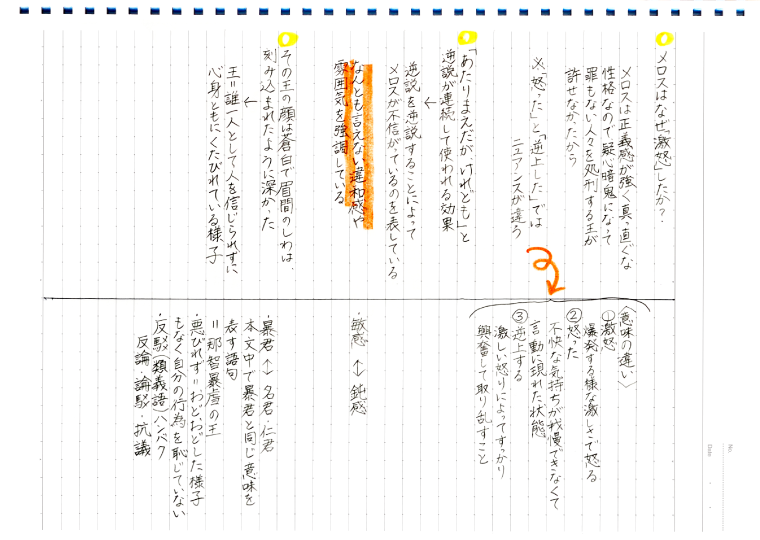 メロスはなぜ「激怒」したか？
メロスは正義感が強く真っ直ぐな
性格なので疑心暗鬼になって
罪もない人々を処刑する王が
許せなかったから
※「怒った」と「逆上した」では
ニュアンスが違う
「あたりまえだが、けれども」と
逆説が連続して使われる効果
↓
逆説を逆説することによって
メロスが不信がているのを表している
なんとも言えない違和感や
雰囲気を強調している
その王の顔は蒼白で眉間のしわは、
刻み込まれたように深かった
↓
王=誰一人として人を信じられずに
心身ともにくたびれている様子
〈意味の違い〉
①激怒
爆発する様な激しさで怒る
②怒った
不快な気持ちが我慢できなくて
言動に現れた状態
③逆上する
激しい怒りによってすっかり
興奮して取り乱すこと
・敏感 ↔ 鈍感
・暴君 ↔ 名君・仁君
本文中で暴君と同じ意味を
表す語句
=邪智暴虐の王
・悪びれず=わどおどした様子
もなく自分の行為を恥じていない
・反駁(類義語)ハンバク
反論 論駁 抗議
No.
Date